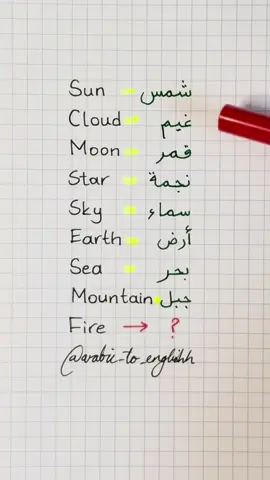 Sun شمس
Cloud غيم
Moon قمر
Star نجمة
Sky سماء
Earth أرض
Sea بحر
Mountain جبل
Fire → ?
@arabic_to_englishh